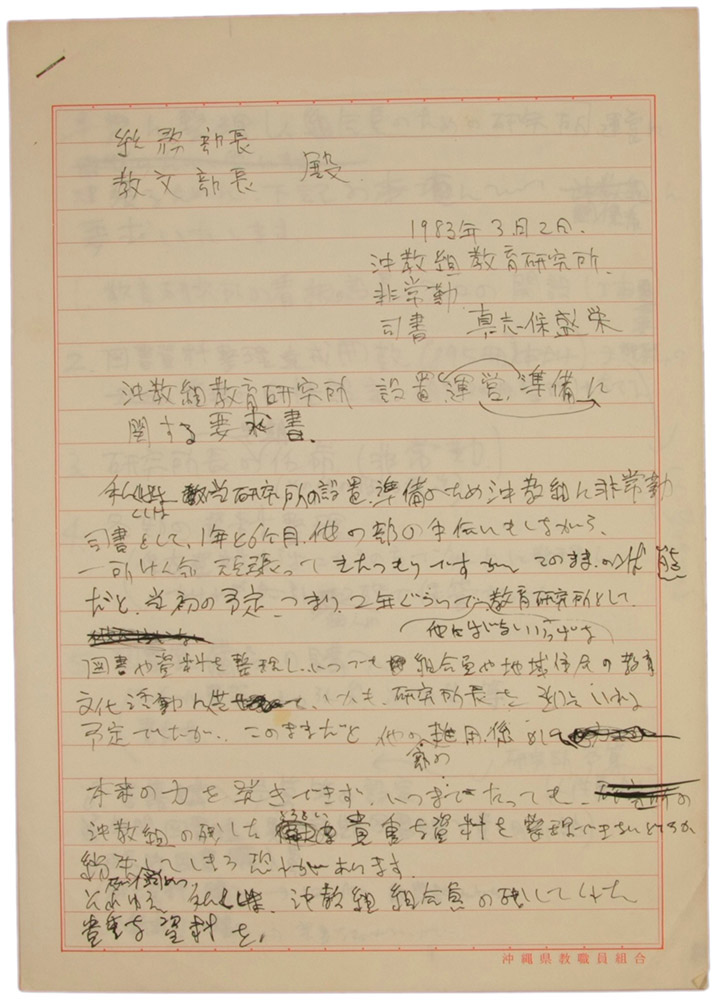 総務部長
教文部長 殿
1983年3月2日.
沖教組教育研究所.
非常勤
司書 真志保盛栄
沖教組教育研究所 設置運営準備に
関する要求書.
私は 教育研究所の設置準備のため沖教組に非常勤
司書として、1年と6ヶ月、他の部の手伝いもしながら、
一所けん命 頑張ってきたつもりですが、このままの状態
だと、当初の予定、つまり、2年ぐらいで教育研究所として
他にはじない
図書や資料を整理し、いつでも組合員や地域住民の教育
文化活動に
予定でしたが、このままだと他の雑用係
部の
本来の力を発きできず、いつまでたっても、
沖教組の残した 貴重な資料を整理できないどころか
紛失してしまう恐れがあります.
それゆえ 沖教組組合員の残してくれた
貴重な資料を、
沖縄県教職員組合